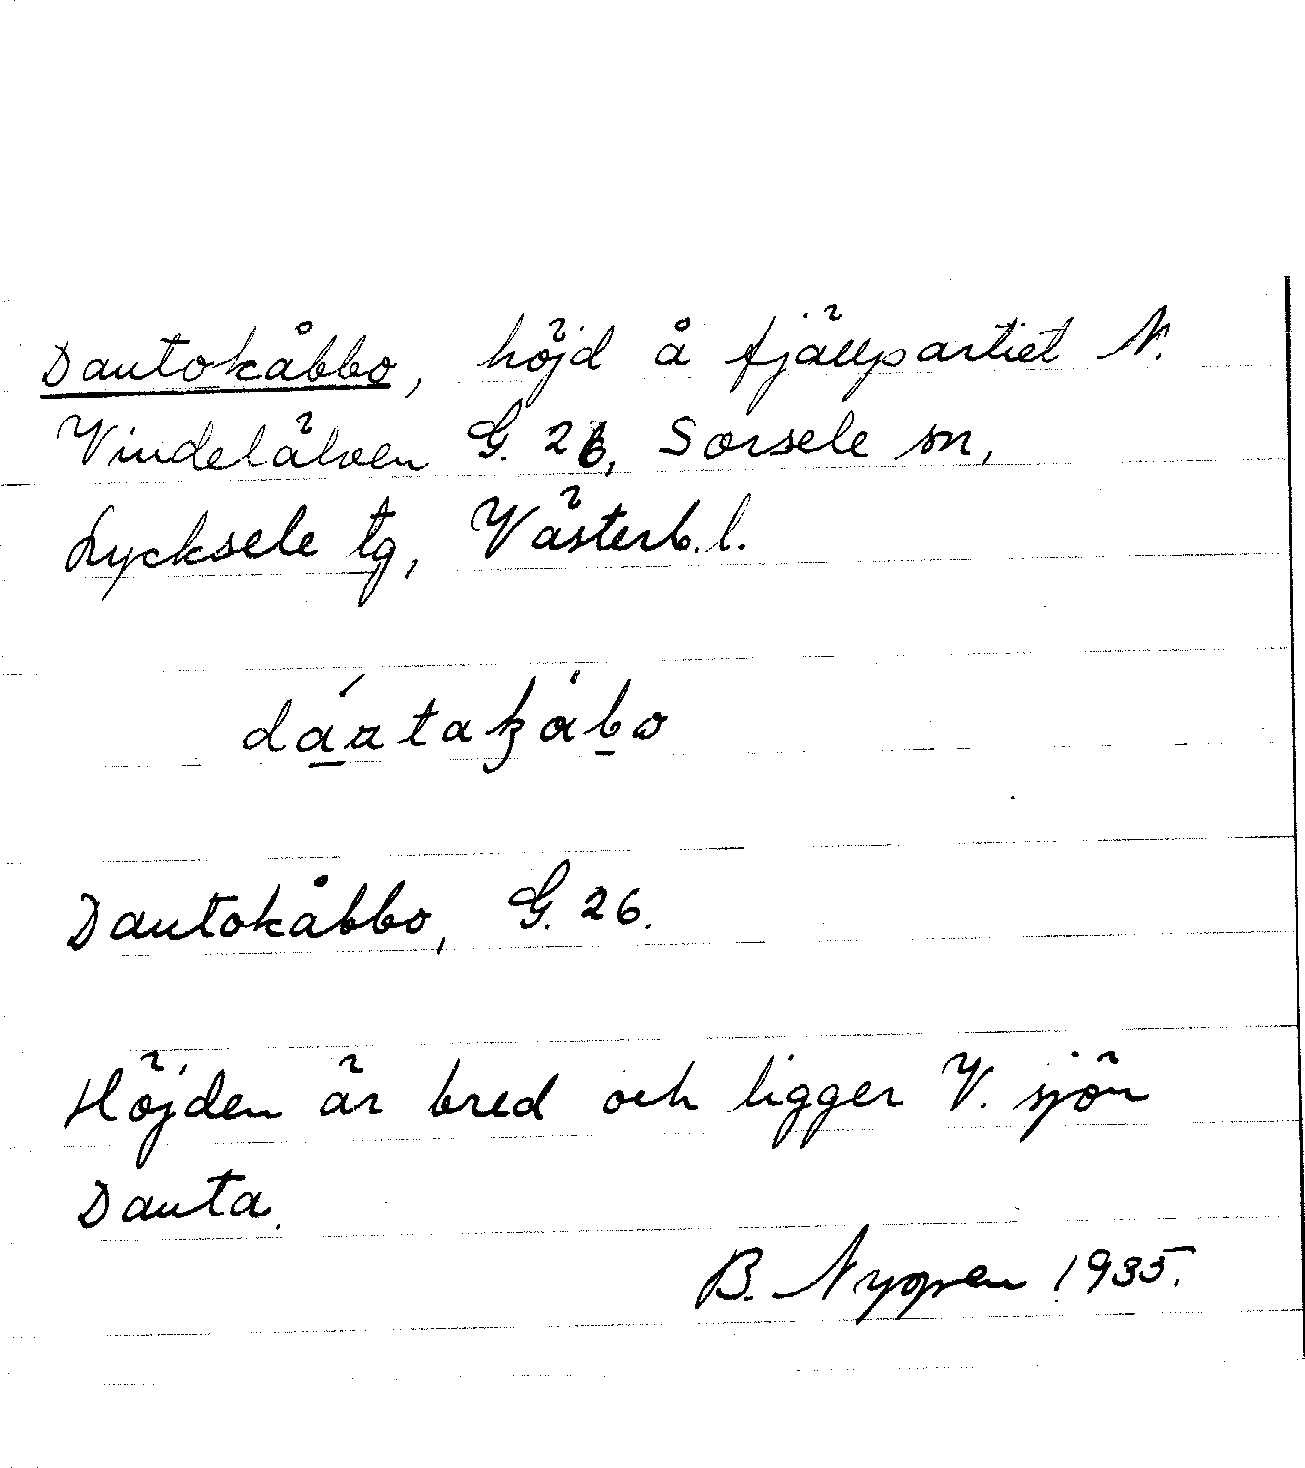 Dautokåbbo, höjd å fjällpartiet N.
Vindelälven G. 26, Sorsele sn,
Lycksele tg, Västerb. l.
Dautokåbbo, G. 26.
Höjden är bred och ligger V. sjön
Dauta.
B. Nygren 1935.